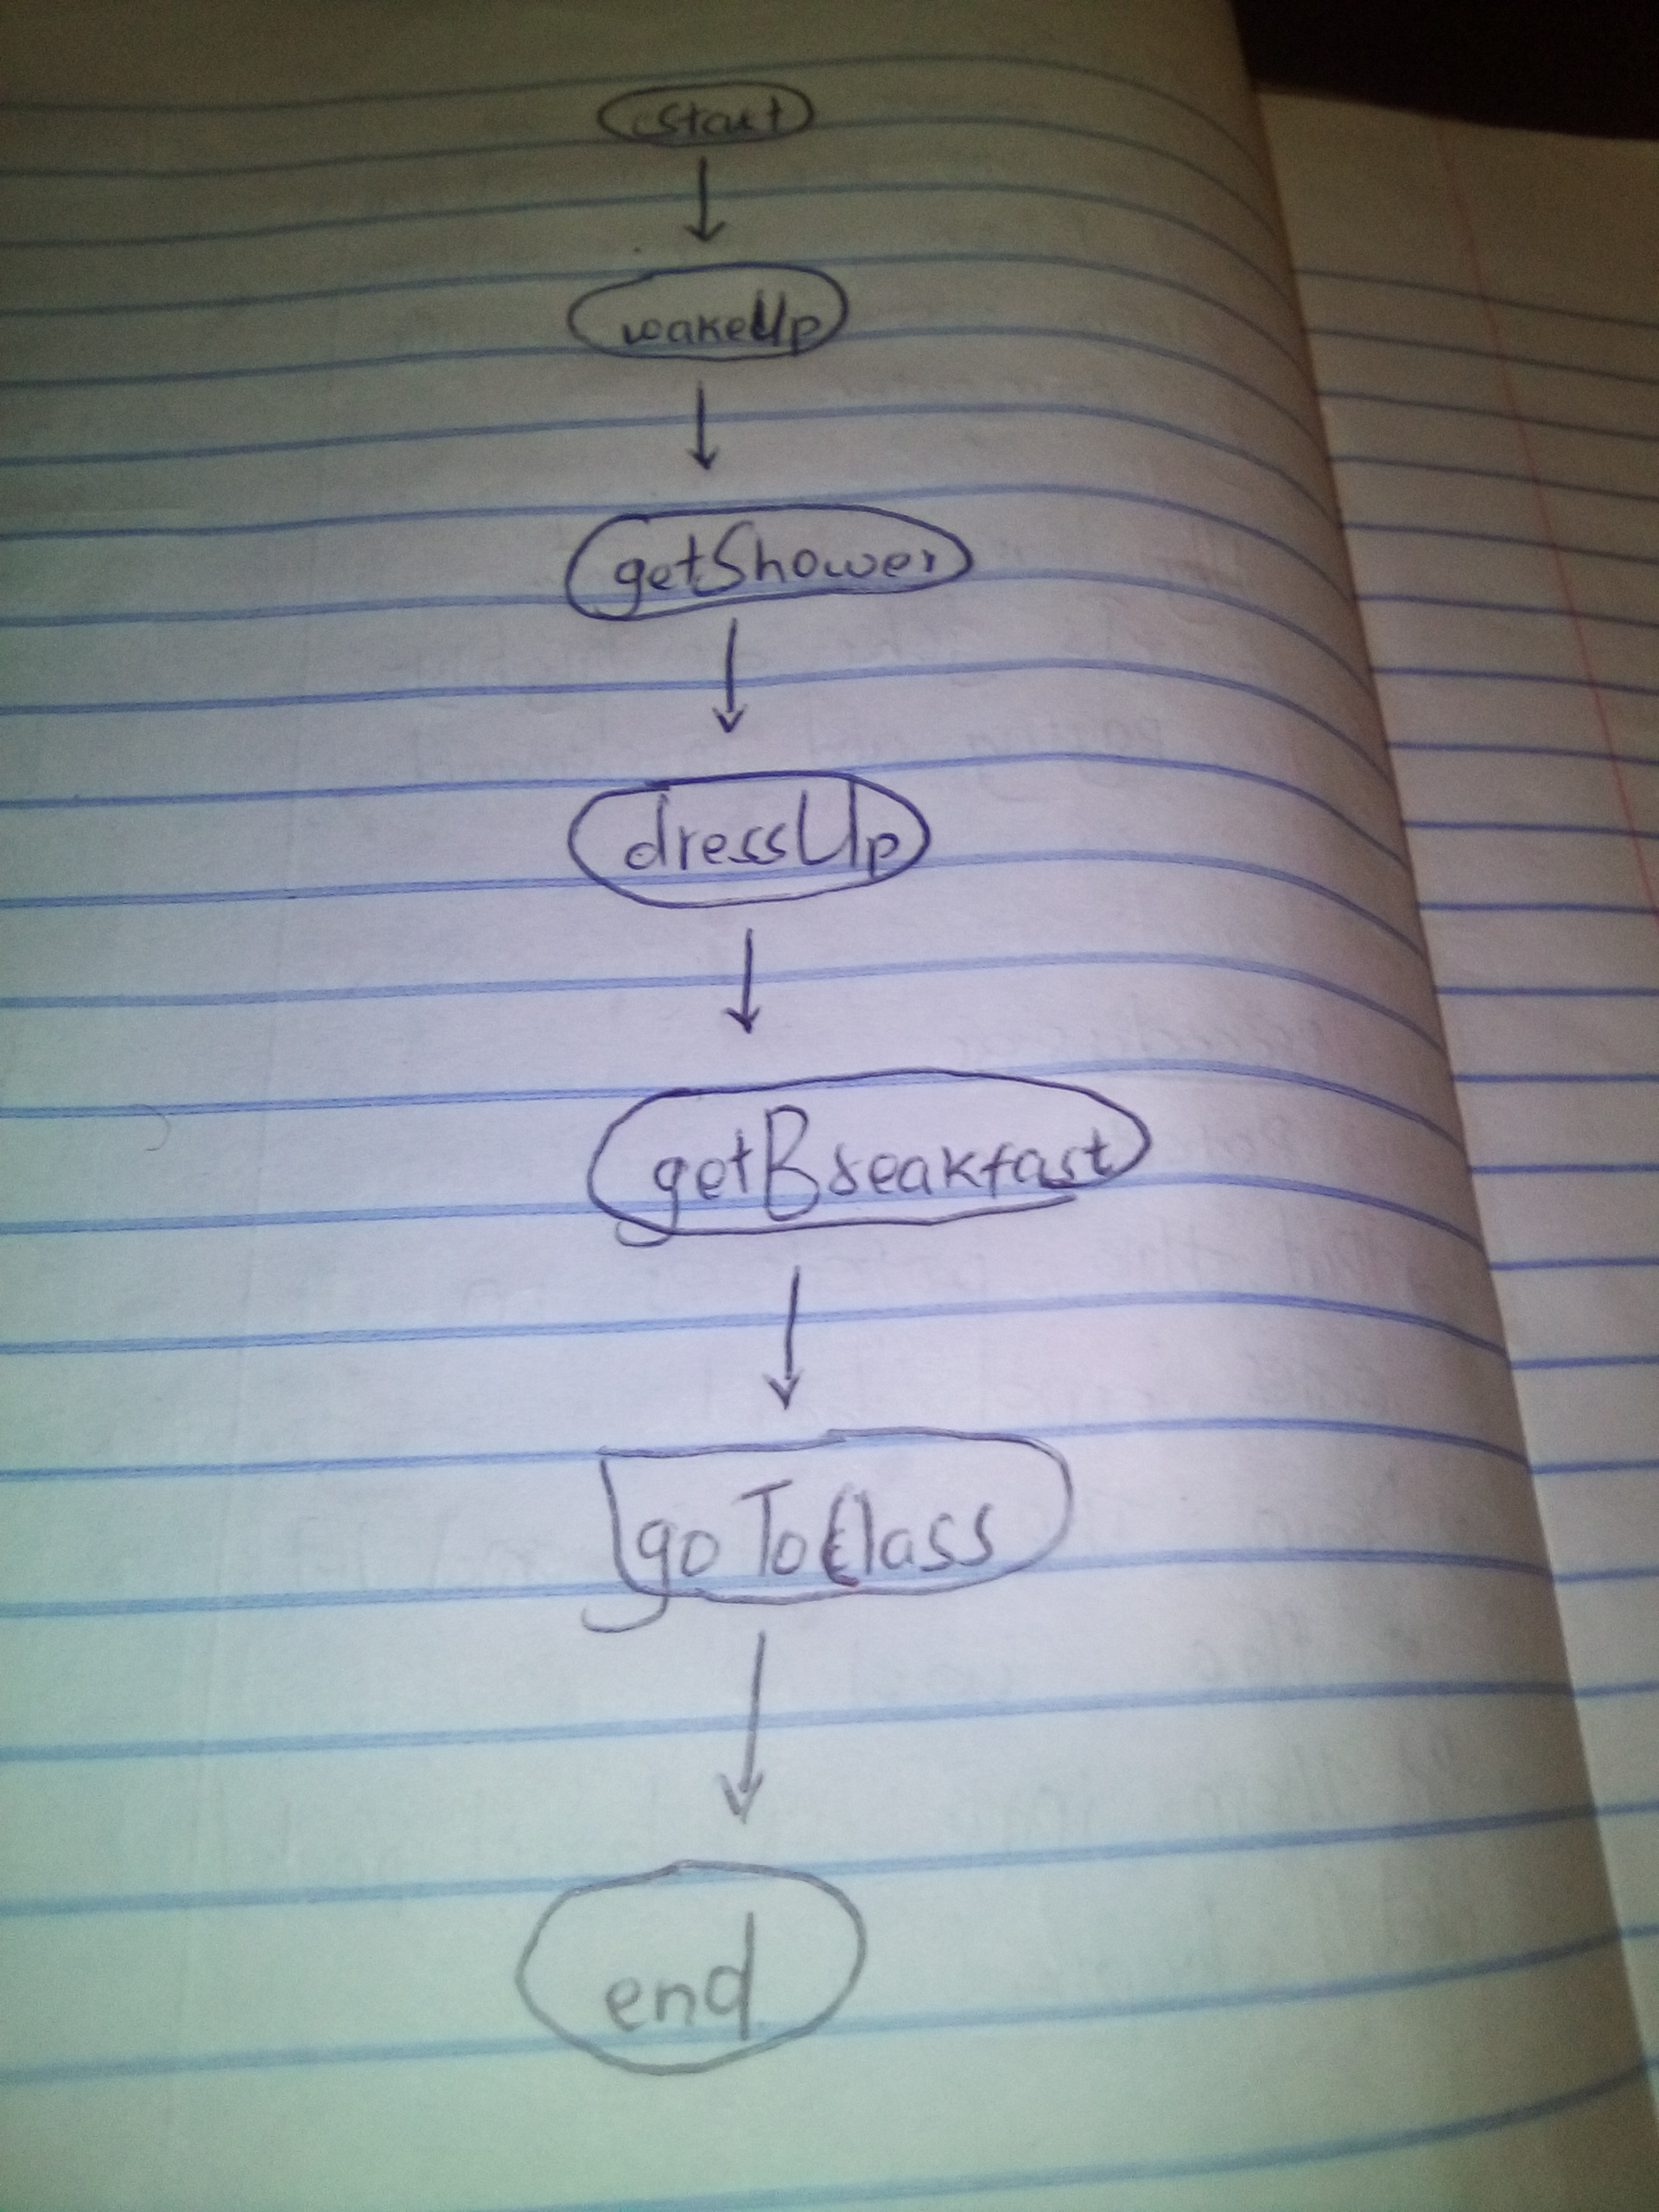 start
wakeUp
getShower
dressUp
getBreakfast
goToClass
end